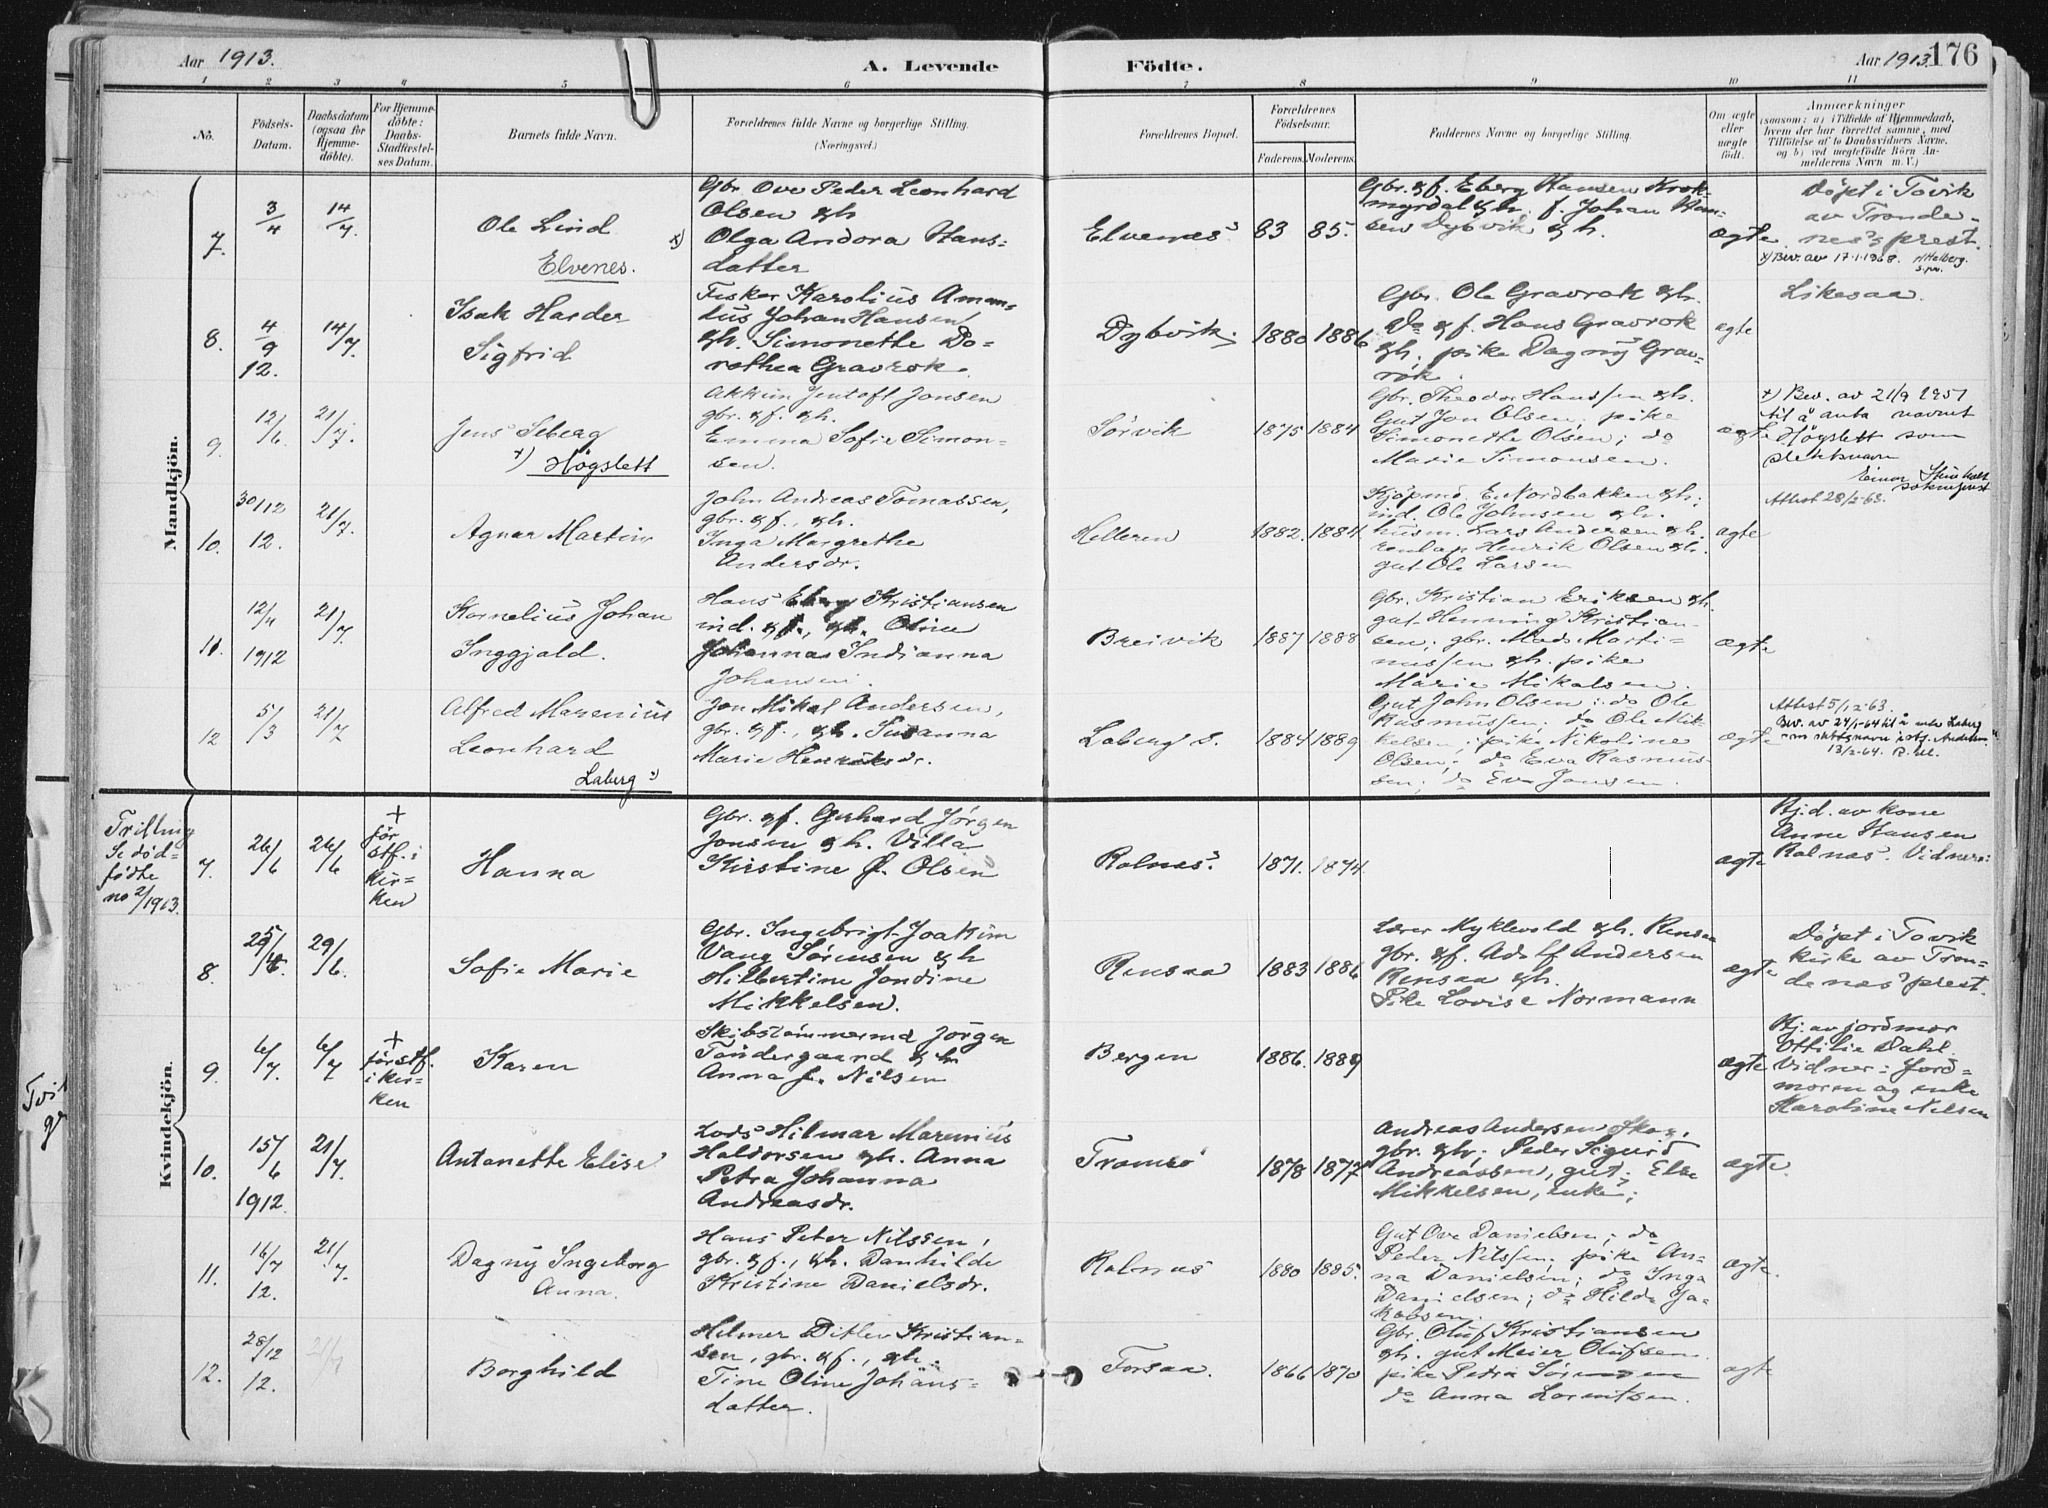 Aar 1913.
A. Levende Födte.
Aar 1913.
176
1 2 3 4 5 6 7 8 9 10 11
No.
Födsels-
Datum.
Daabsdatum
(ogsaa for
Hjemme-
döbte).
For Hjemme-
döbte:
Daabs-
Stadfæstel-
ses Datum.
Barnets fulde Navn.
Forældrenes fulde Navne og borgerlige Stilling.
(Næringsvei.)
Forældrenes Bopæl.
Forældrenes
Födselsaar.
Faderens. Moderens.
Faddernes Navne og borgerlige Stilling.
Om ægte
eller
uægte
født.
Anmærkninger
(saasom: a) i Tilfælde af Hjemmedaab,
hvem der har forrettet samme, med
Tilföielse af to Daabsvidners Navne,
og b) ved uægtefödte Börn An-
melderens Navn m. V.)
Mandkjön.
7.
3/4
14/7.
Ole Lind
Elvenes.
Gbr. Ove Peder Leonhard
Olsen & h
x) Olga Andora Hans-
datter
Elvenes
83 85.
Gbr. & f. Eberg Hansen Krok-
myrdal & h. f. Johan Han-
sen Dybvik & h.
ægte
Döpt i Tovik
av Tronde-
nes prest.
x) Bev. av 17-1-1968.
8.
4/9
12.
14/7
Isak Harder
Sigfrid
Fisker Karolius Aman-
dus Johan Hansen
& h. Simonette Do-
rothea Gravrok.
Dybvik.
1880 1886
Gbr. Ole Gravrok & h.
Do & f. Hans Gravrok
& h. pike Dagny Grav-
rok.
ægte
Likesaa.
9
12/6
21/7.
Jens Seberg
x) Högslett
Akkim Jentoft Jonsen
gbr. & f. & h.
Emma Sofie Simon-
sen.
Sörvik
1875 1884
Gbr. Theodor Hanssen & h.
Gut Jon Olsen, pike
Simonette Olsen; do
Marie Simonsen.
ægte
x) Bev. av 21/9 1951
til å anta navnet
Högslett som
slektsnavn
10.
30/12
12.
21/7.
Agnar Martin
John Andreas Tomassen,
gbr. & f., & h.
Inga Margrethe
Andersdr.
Helleren
1882. 1884
Kjöpmd. E. Nordbakken & h.
ind. Ole Johnsen & h.
husm. Lars Andersen & h.
Henrik Olsen & h.
gut Ole Larsen
ægte
Attest 28/2-63.
11.
12/4
1912
21/7.
Kornelius Johan
Inggjald.
Hans Eberg Kristiansen
ind. & f., & h. Oline
Johanna Indianna
Johansen.
Breivik
1887 1888
Gbr. Kristian Eriksen & h.
gut Henning Kristian-
sen; gbr. Mads Marti-
nussen & h. pike
Marie Mikalsen
ægte
12
5/3
21/7
Alfred Marenius
Leonhard
Laberg x)
Jon Mikal Andersen,
gbr. & f., & h. Susanna
Marie Henriksdr.
Laberg s.
1884 1889
Gut John Olsen; do Ole
Rasmussen; do Ole Mik-
kelsen; pike Nikoline
Olsen; do Eva Rasmus-
sen; do Eva Jonsen.
ægte
Attest 5/12-63.
Bev. av 24/1-64 til å anta Laberg
som slektsnavn istf. Andersen
13/2-64.
Kvindekjön.
Trilling
Se död-
födte
no 2/1913.
7.
26/6
26/6
+
för
stf. i
kir-
ken
Hanna
Gbr. & f. Gerhard Jörgen
Jonsen & h. Villa
Kirstine f. Olsen
Rolnes.
1871. 1874
ægte
Hj.d. av kone
Anne Hansen
Rolnas. Vidner:
8
29/
29/6.
Sofie Marie
Gbr. Ingebrigt Joakim
Vang Sörensen & h
Hilbertine Jondine
Mikkelsen.
Rensaa
1883 1886
Lærer Myklevold & h. Rensaa
gbr. & f. Adolf Andersen
Rensaa & h.
Pike Lovise Normann
ægte
Döpt i Tovik
kirke av Tron-
denes prest.
9.
6/7.
6/7
+
för stf.
i kir-
ken
Karen
Skibstömmermd Jörgen
Töndergaard & h
Anna f. Nilsen
Bergen
1886. 1889
ægte
Hj. av jordmor
Ottilie Dahl.
Vidner: Jord-
moren og enke
Karoline Nilsen
10.
15/6
1912.
21/7.
Antonette Elise
Lods Hilmar Marenius
Haldorsen & h. Anna
Petra Johanna
Andreasdr.
Tromsö
1878 1877
Andreas Andersen Skog.
gbr. & h; Peder Sigurd
Andreassen, gut; Else
Mikkelsen, enke;
ægte.
11.
16/7
12.
21/7.
Dagny Ingeborg
Anna.
Hans Peter Nilssen,
gbr. & f., & h. Danhilde
Kristine Danielsdr.
Rolnes
1880 1885.
Gut Ove Danielsen; do
Peder Nilssen, pike An-
na Danielsen; do Inga
Danielsen; do Hilda Ja-
kobsen.
ægte.
12.
28/12
12.
21/7
Borghild
Hilmer Ditlev Kristian-
sen, gbr. & f., & h.
Tine Oline Johans-
datter.
Forsaa.
1866 1870
Gbr. Oluf Kristiansen
& h. gut Meier Olufsen.
pike Petra Sörensen
do Anna Lorentsen.
ægte